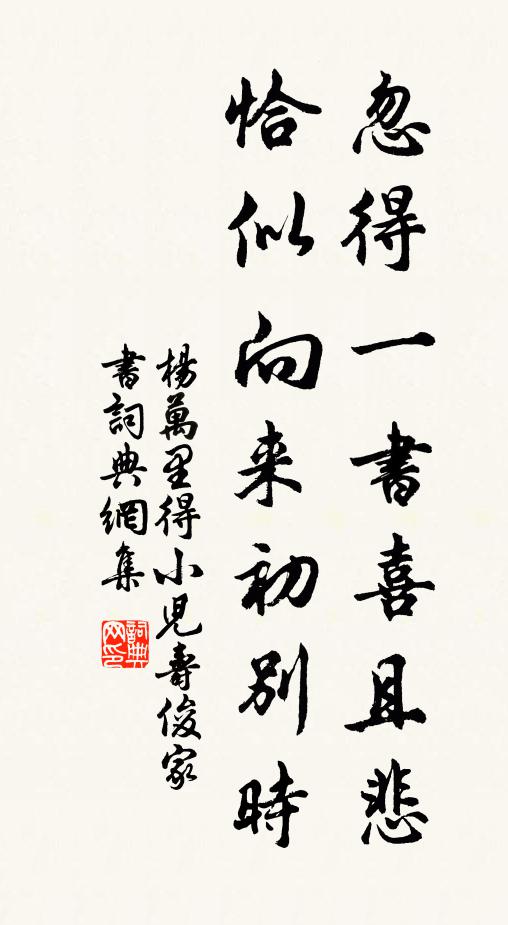 忽得一書喜且悲
恰似向来初別時
楊萬里得小児壽俊家
書詞典網集
詞典网印